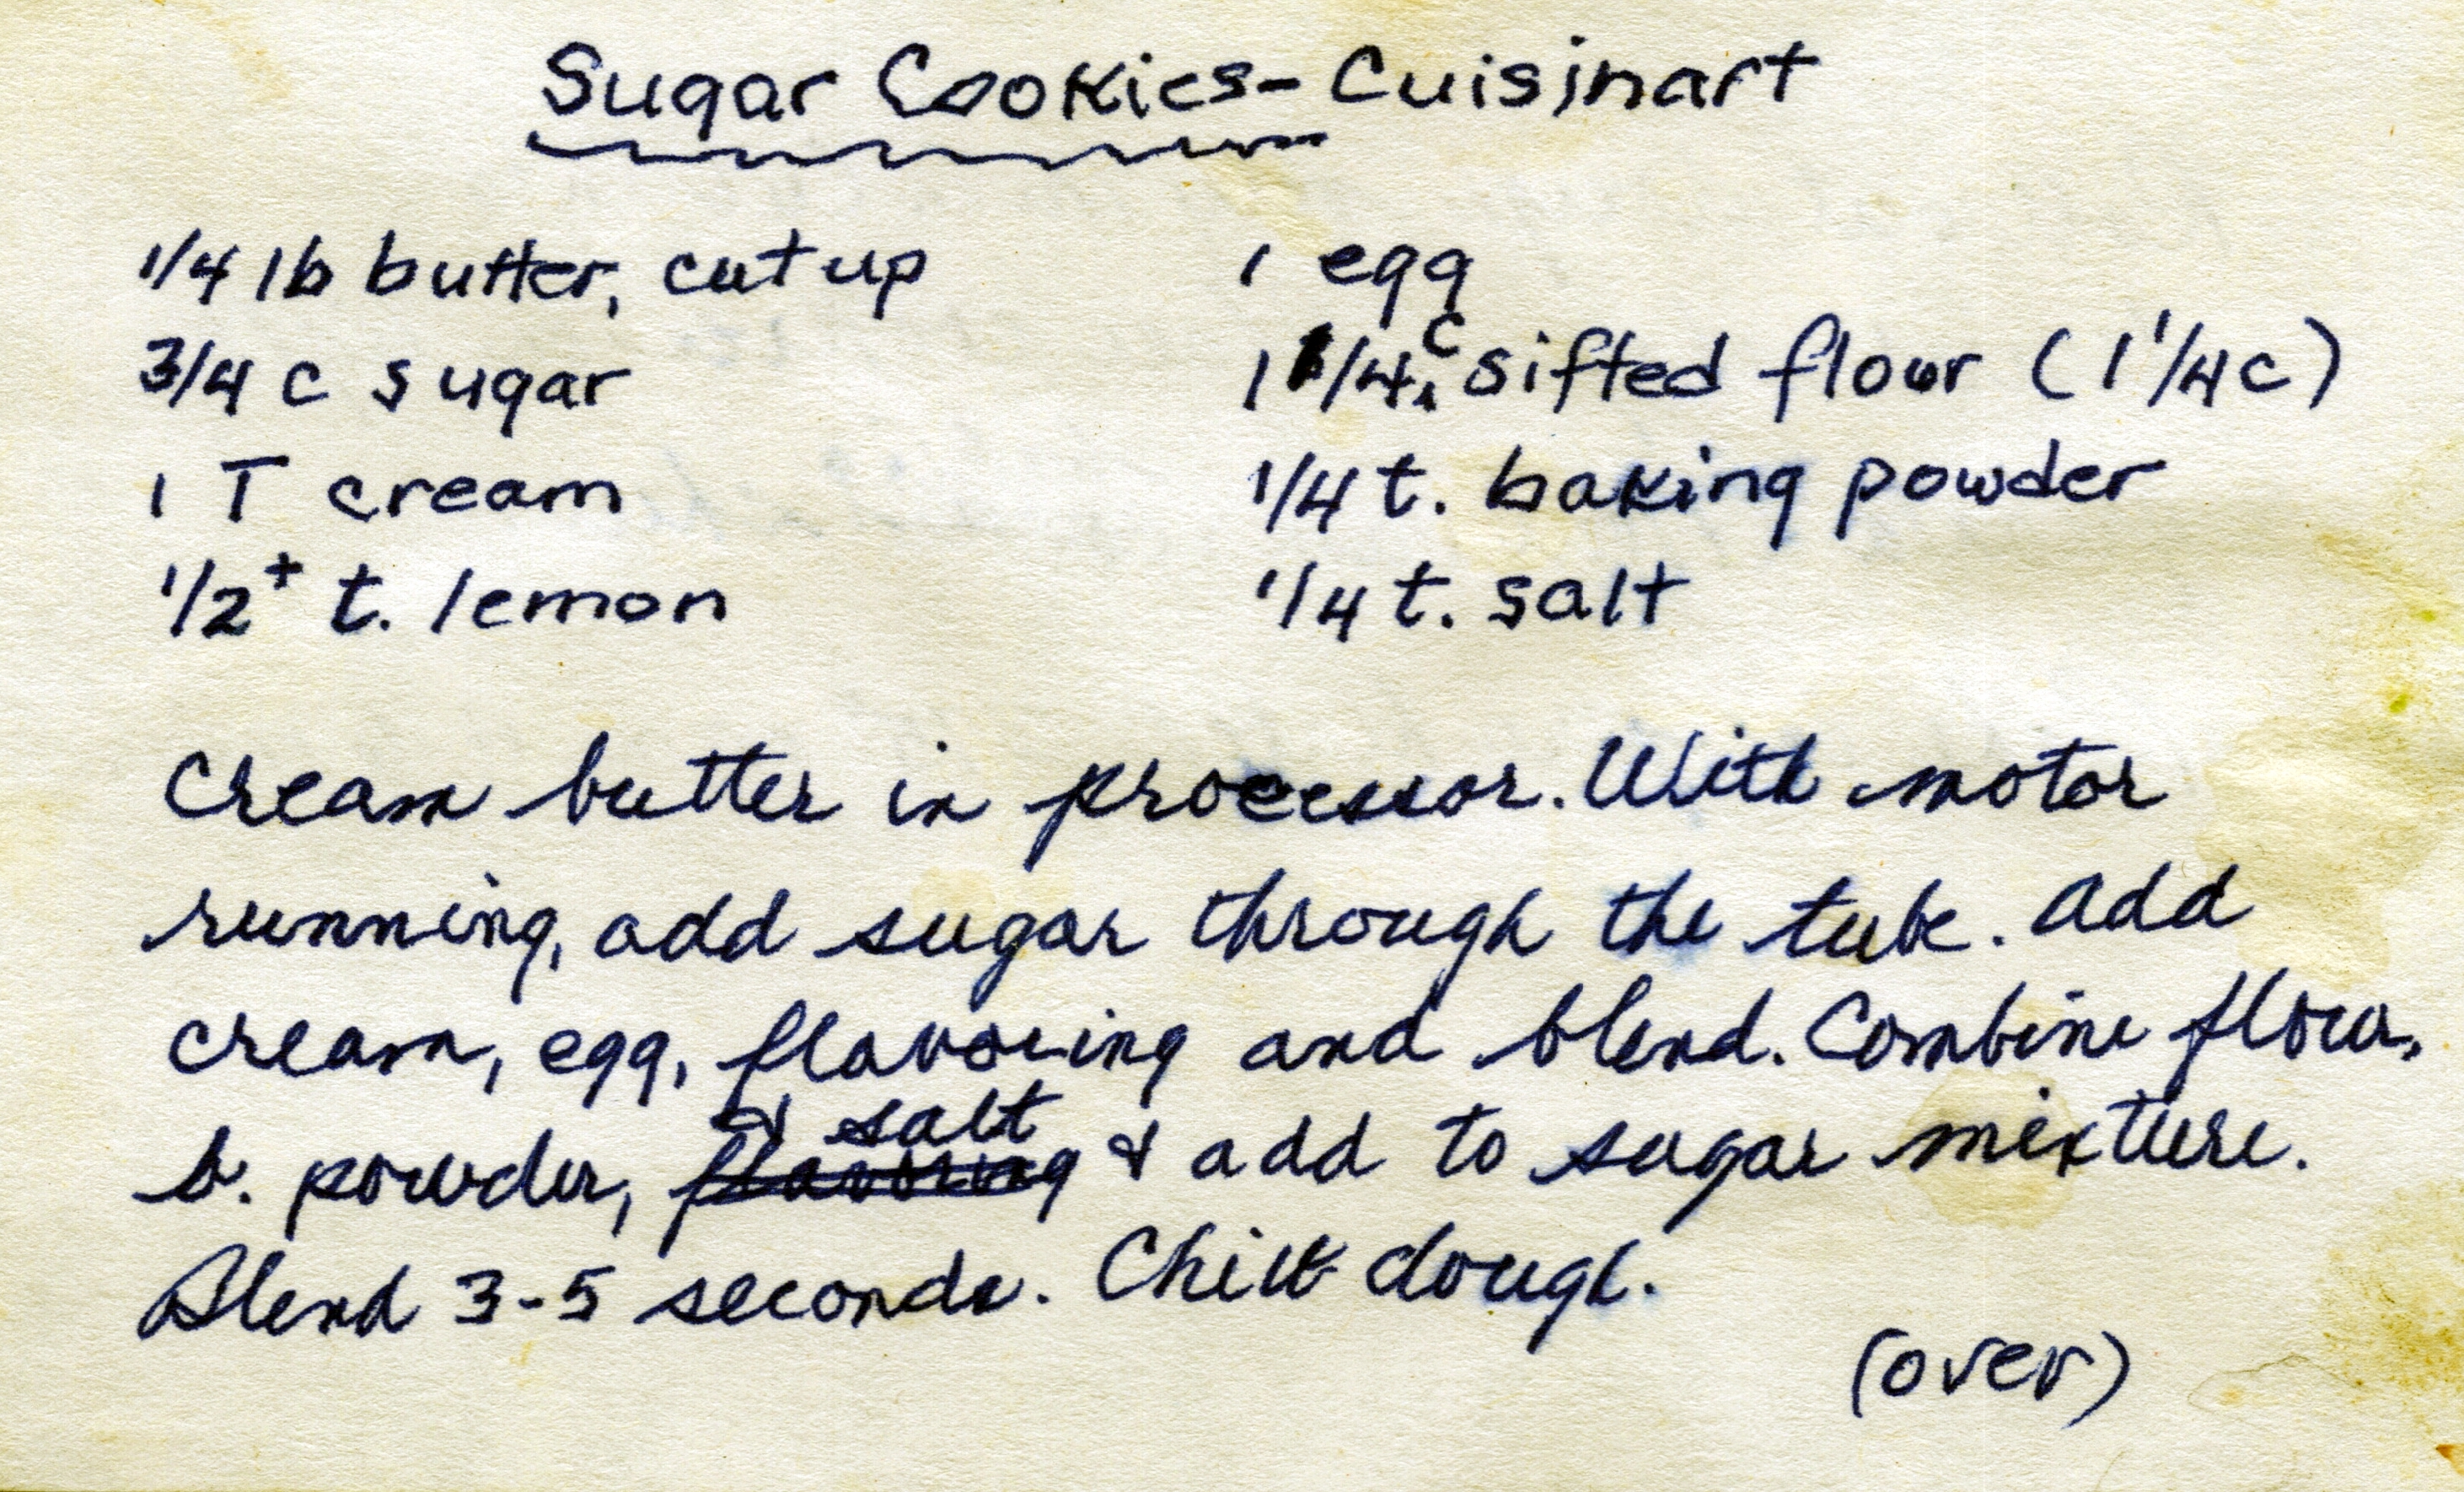 Sugar Cookies - Cuisinart
1/4 lb butter, cut up
3/4 c sugar
1 T cream
1/2+ t. lemon
1 egg
1 1/4 c sifted flour (1 1/4 c)
1/4 t. baking powder
1/4 t. salt
Cream butter in processor. With motor
running, add sugar through the tube. Add
cream, egg, flavoring and blend. Combine flour,
& salt
b. powder, flavoring & add to sugar mixture.
Blend 3-5 seconds. Chill dough.
(over)